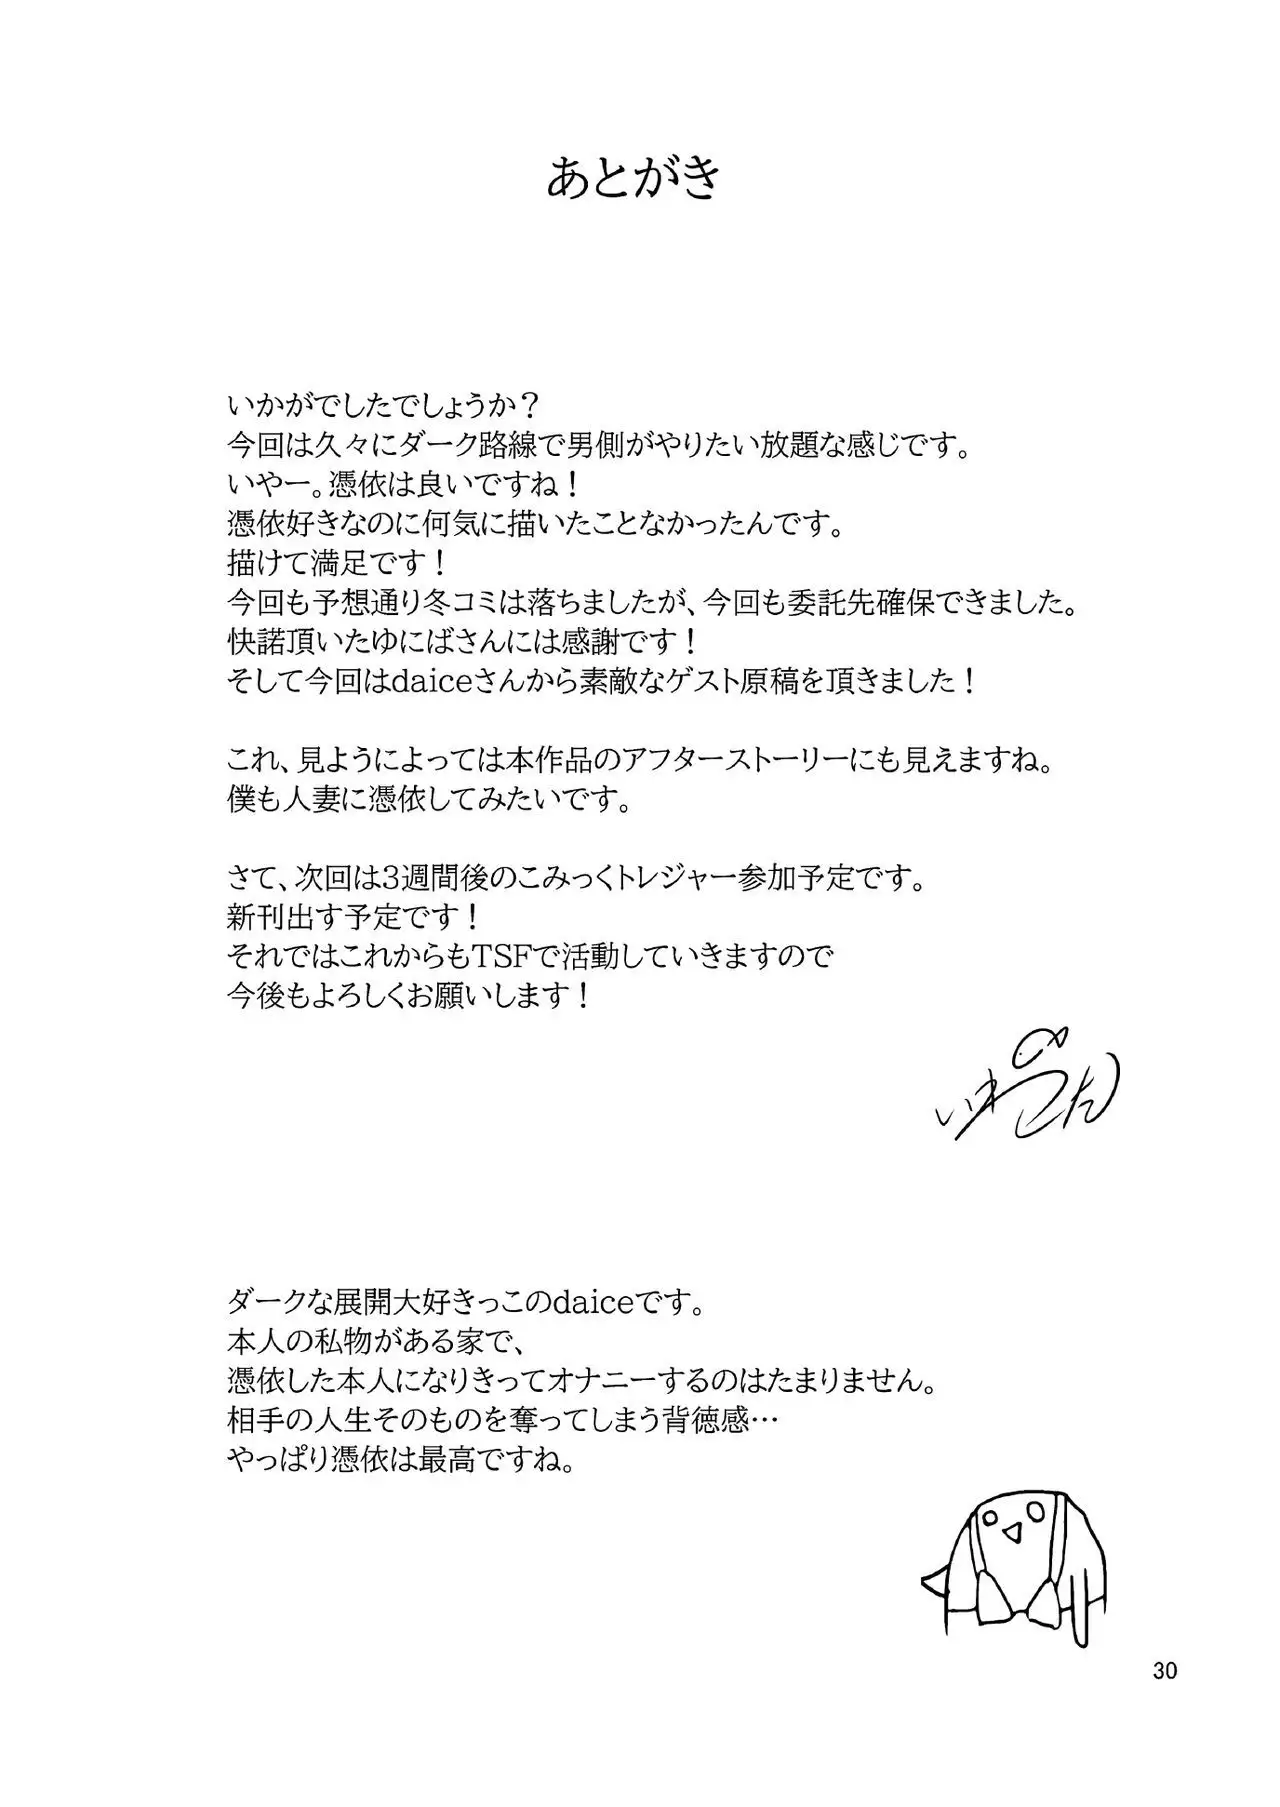 あとがき
いかがでしたでしょうか?
今回は久々にダーク路線で男側がやりたい放題な感じです。
いやー。憑依は良いですね!
憑依好きなのに何気に描いたことなかったんです。
描けて満足です!
今回も予想通り冬コミは落ちましたが、今回も委託先確保できました。
快諾頂いたゆにばさんには感謝です!
そして今回はdaiceさんから素敵なゲスト原稿を頂きました!
これ、見ようによっては本作品のアフターストーリーにも見えますね。
僕も人妻に憑依してみたいです。
さて、次回は3週間後のこみっくトレジャー参加予定です。
新刊出す予定です!
それではこれからもTSFで活動していきますので
今後もよろしくお願いします!
ダークな展開大好きっこのdaiceです。
本人の私物がある家で、
憑依した本人になりきってオナニーするのはたまりません。
相手の人生そのものを奪ってしまう背徳感…
やっぱり憑依は最高ですね。
30